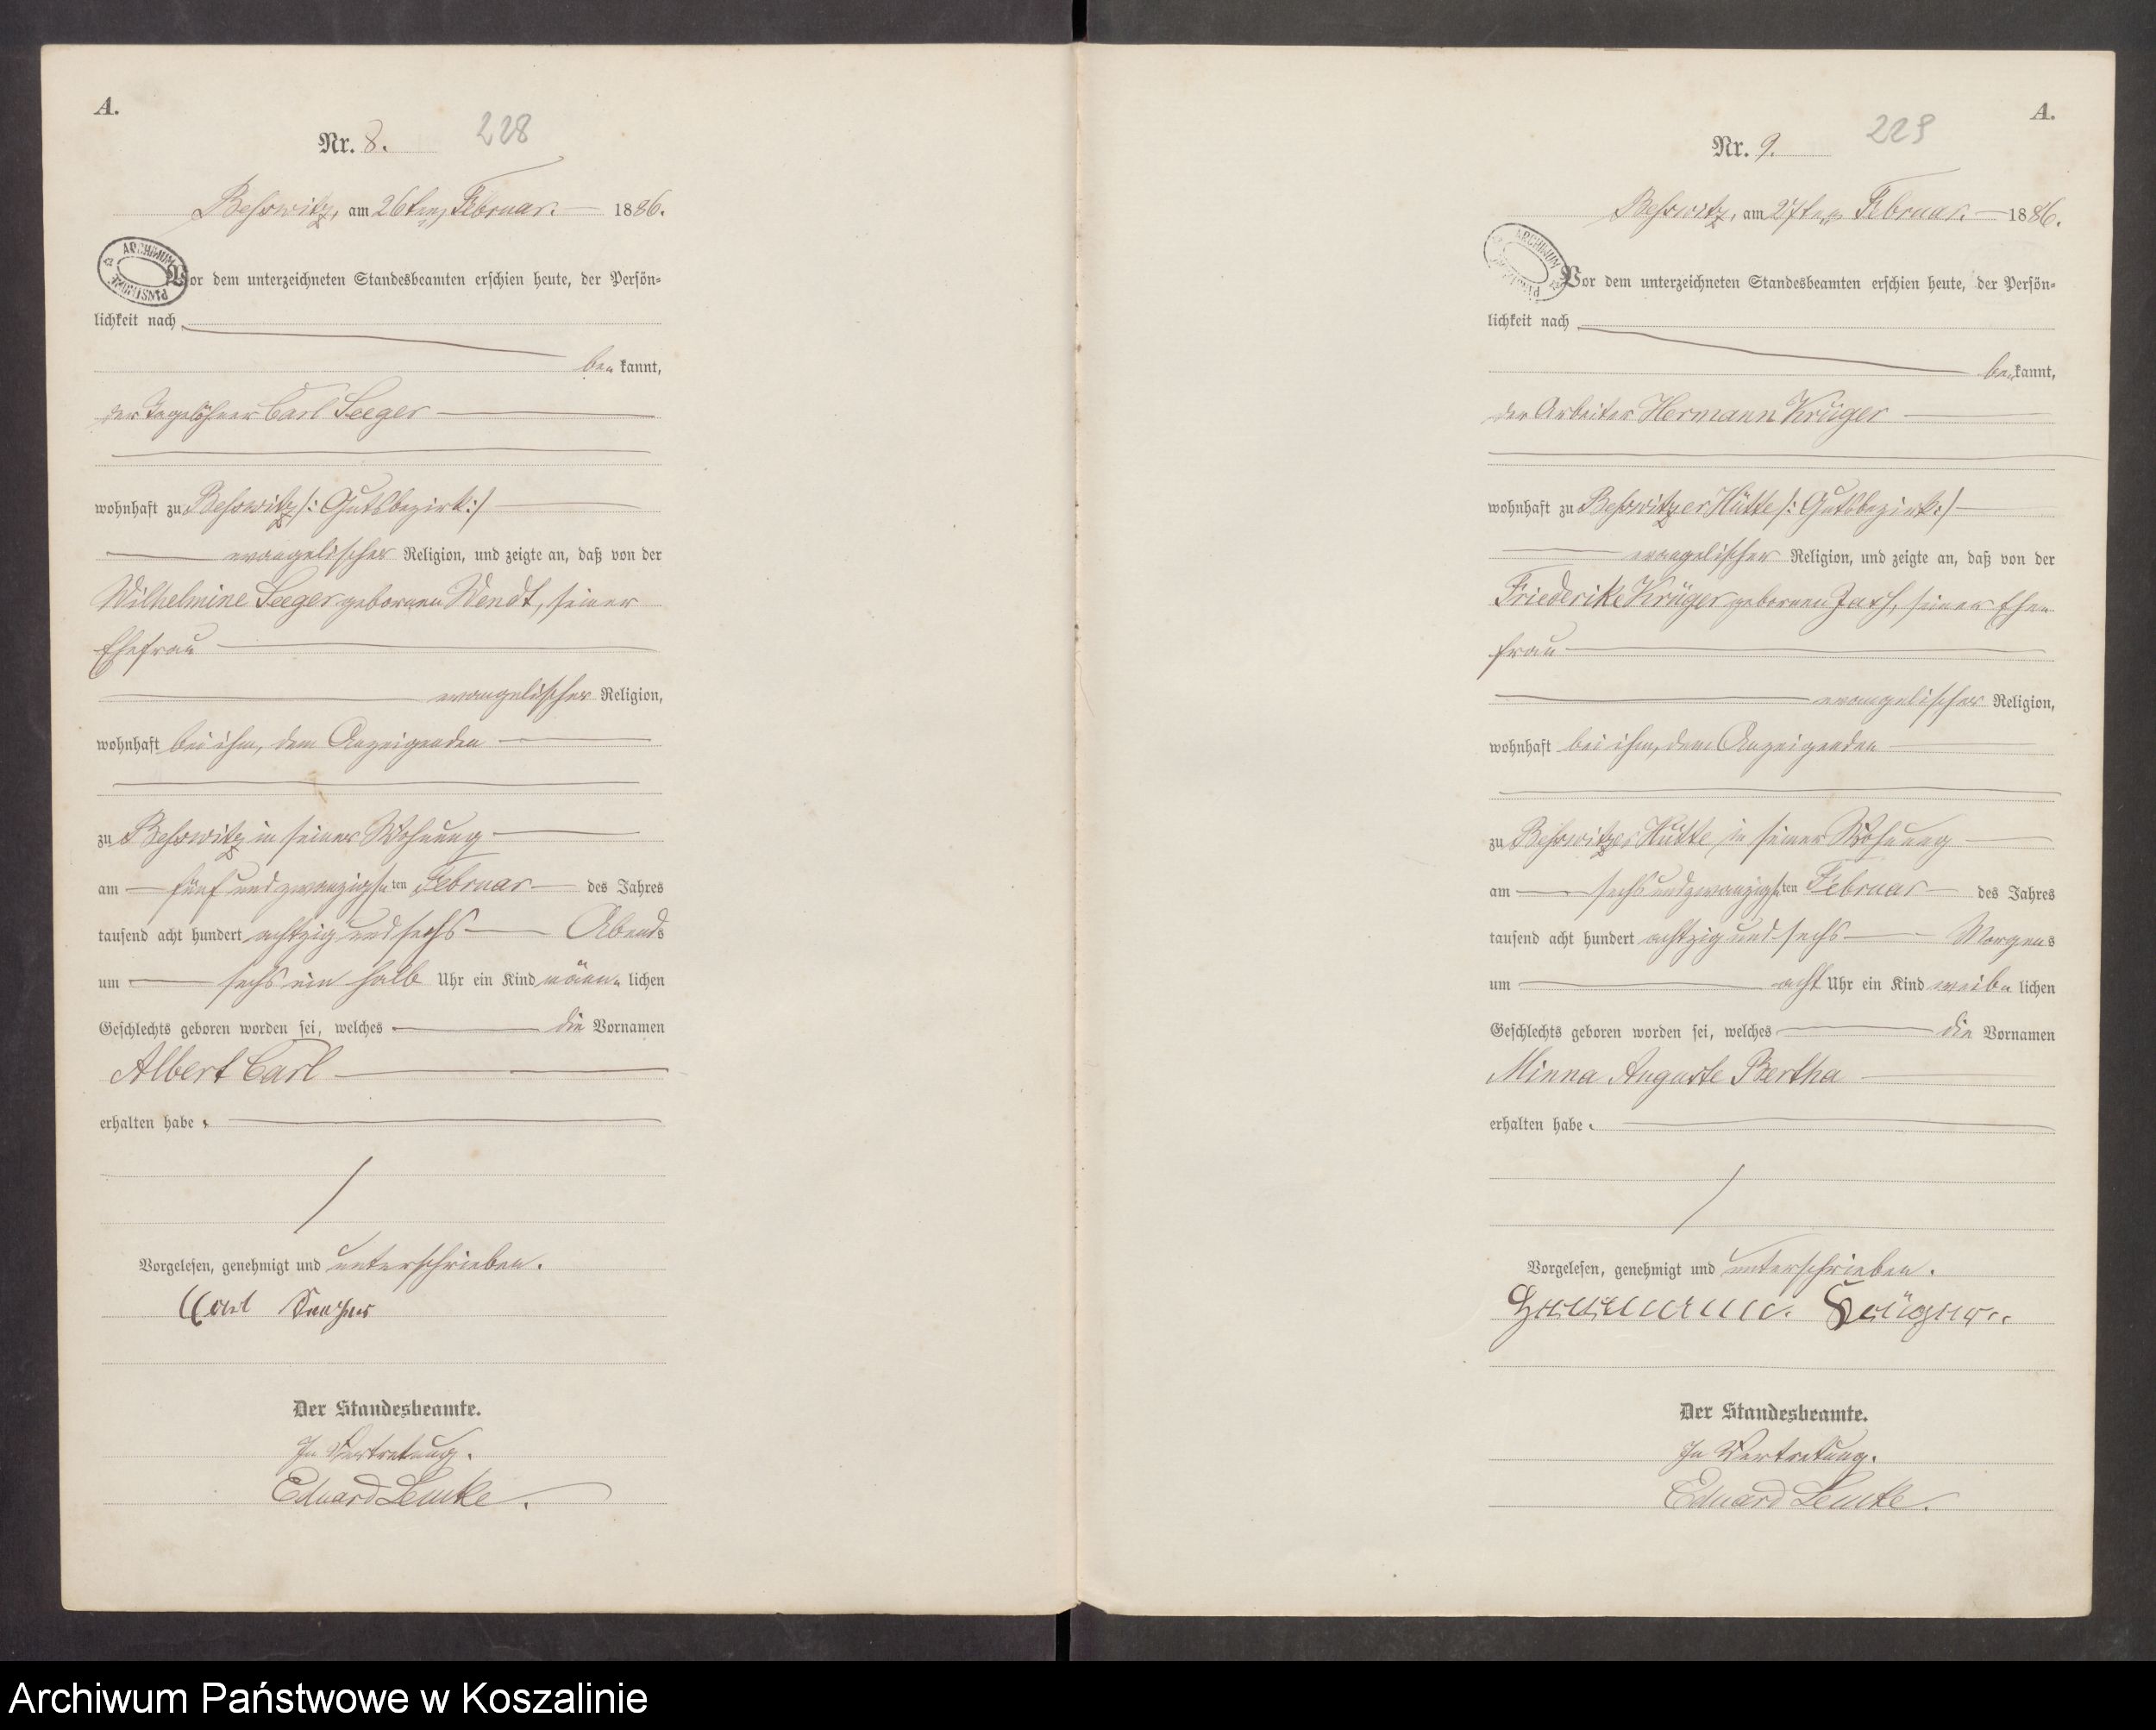 A.
Nr. 8.
228
Beßwitz, am 26ten Februar. 1886.
ARCHIWUM PAŃSTWOWE
Vor dem unterzeichneten Standesbeamten erschien heute, der Persön-
lichkeit nach
be- kannt,
der Tagelöhner Carl Seeger
wohnhaft zu Beßwitz /: Gutsbezirk :/
evangelischer Religion, und zeigte an, daß von der
Wilhelmine Seeger geborenen Wendt, seiner
Ehefrau
evangelischer Religion,
wohnhaft bei ihm, dem Anzeigenden
zu Beßwitz in seiner Wohnung
am fünf und zwanzigsten Februar des Jahres
tausend acht hundert achtzig und sechs Abends
um sechs ein halb Uhr ein Kind männ- lichen
Geschlechts geboren worden sei, welches die Vornamen
Albert Carl
erhalten habe.
Vorgelesen, genehmigt und unterschrieben.
Carl
Der Standesbeamte.
In Vertretung.
Eduard Lemke.
A.
Nr. 9.
229
Beßwitz, am 27ten Februar. 1886.
ARCHIWUM
Vor dem unterzeichneten Standesbeamten erschien heute, der Persön-
lichkeit nach
be- kannt,
der Arbeiter Hermann Krüger
wohnhaft zu Beßwitzer Hütte /: Gutsbezirk :/
evangelischer Religion, und zeigte an, daß von der
Friederike Krüger geborenen seiner Ehe-
frau
evangelischer Religion,
wohnhaft bei ihm, dem Anzeigenden
zu Beßwitzer Hütte in seiner Wohnung
am sechs und zwanzigsten Februar des Jahres
tausend acht hundert achtzig und sechs Morgens
um acht Uhr ein Kind weib- lichen
Geschlechts geboren worden sei, welches die Vornamen
Minna Auguste Bertha
erhalten habe.
Vorgelesen, genehmigt und unterschrieben.
Herrmann Krüger.
Der Standesbeamte.
In Vertretung.
Eduard Lemke.
Archiwum Państwowe w Koszalinie